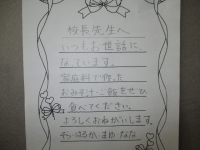 校長先生へ
いつもお世話に
なっています。
家庭科で作った
おみそ汁とご飯をぜひ
食べてください。
よろしくおねがいします。
はるか まや なな